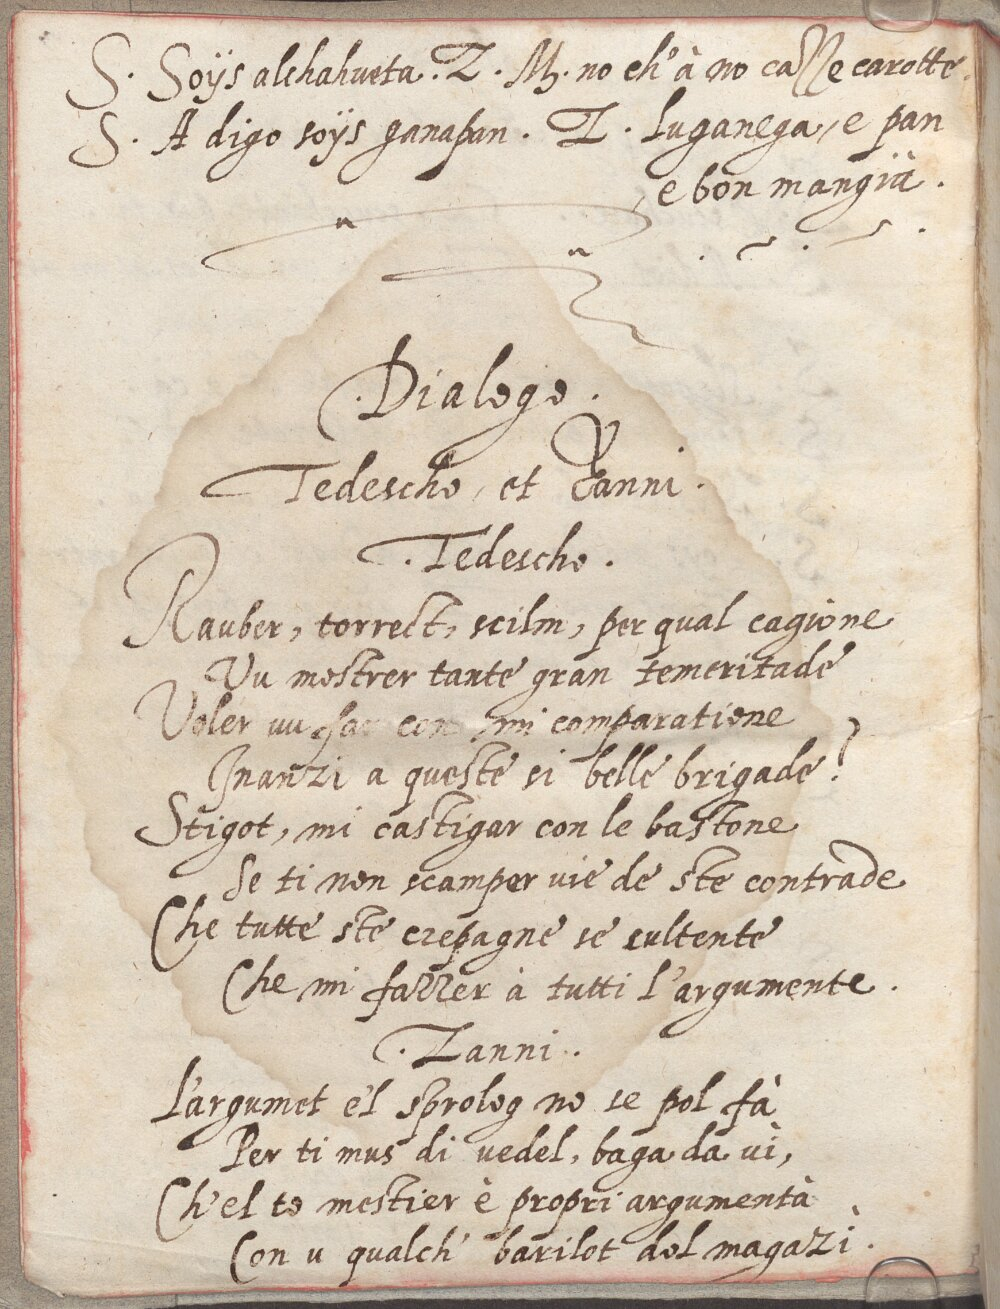 S. Soÿs alchahueta. Z. M. no ch'à no cazze carotte.
S. A digo soÿs ganapan. Z. Luganega, e pan
e bon mangià.
Dialogo.
Tedescho, et Zanni.
Tedescho.
Rauber, torrect, scilm, per qual cagione
Vu mostrer tante gran temeritade
Voler vu far con mi comparatione
Inanzi a queste si belle brigade?
Stigot, mi castigar con le bastone
Se ti non scamper vie de ste contrade
Che tutte ste crepagne se sultente
Che mi fazzer à tutti l'argumente.
Zanni.
L'argumet e'l sprolog no se pol fà
Per ti mus di vedel, baga da vi,
Ch'el to mestier è propri argumentà
Con u qualch' barilot del magazì.